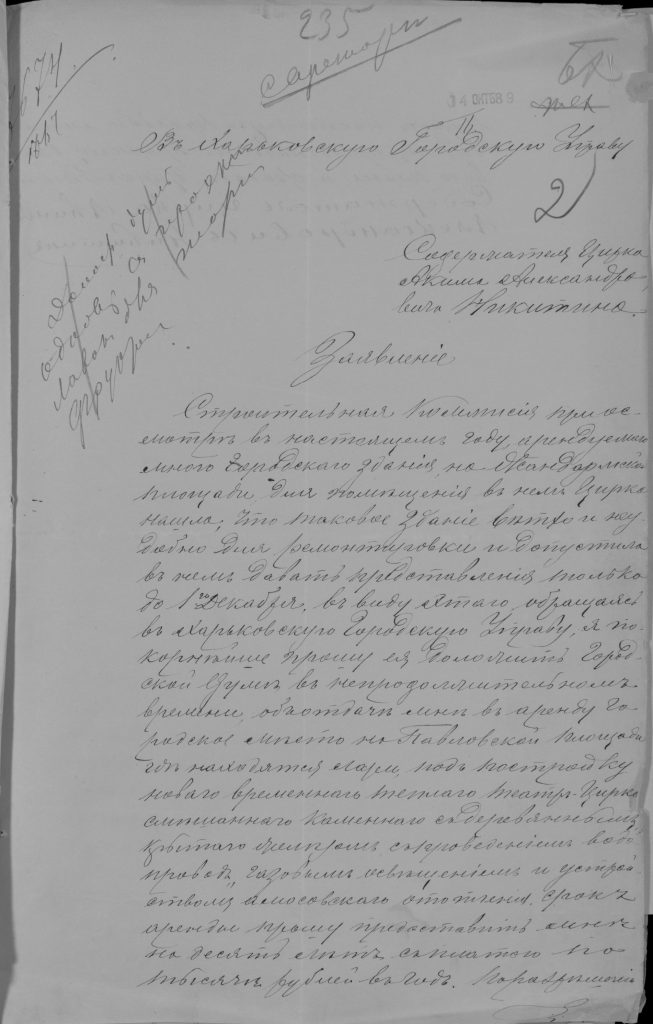 235
14 ОКТ 89
Въ Харьковскую Городскую Управу
2
Содержателя Цирка
Акима Александро
вича Никитина.
Заявленіе
Строительная Коммисія при ос-
мотрѣ въ настоящемъ году арендуемаго
мною Городскаго зданія, на Жандармской
площади, для помѣщенія въ немъ Цирка
нашла, что таковое зданіе ветхо и неу-
добно для ремонтировки и допустила
въ немъ давать представленія только
до 1го Декабря, въ виду этаго, обращаясь
въ Харьковскую Городскую Управу, я по-
корнѣйше прошу ея доложить Город-
ской Думѣ въ непродолжительномъ
времени, объ отдачѣ мнѣ въ аренду Го-
родское мѣсто на Павловской площади
гдѣ находятся лари, подъ постройку
новаго временнаго теплаго театръ-Цирка
смѣшаннаго каменнаго съ деревяннымъ
крытаго желѣзомъ съ проведеніемъ водо-
провода, газовымъ освѣщеніемъ и устрой-
ствомъ амосовскаго отопленія, срокъ
аренды прошу предоставить мнѣ
на десять лѣтъ съ платою по
тысячѣ рублей въ годъ.